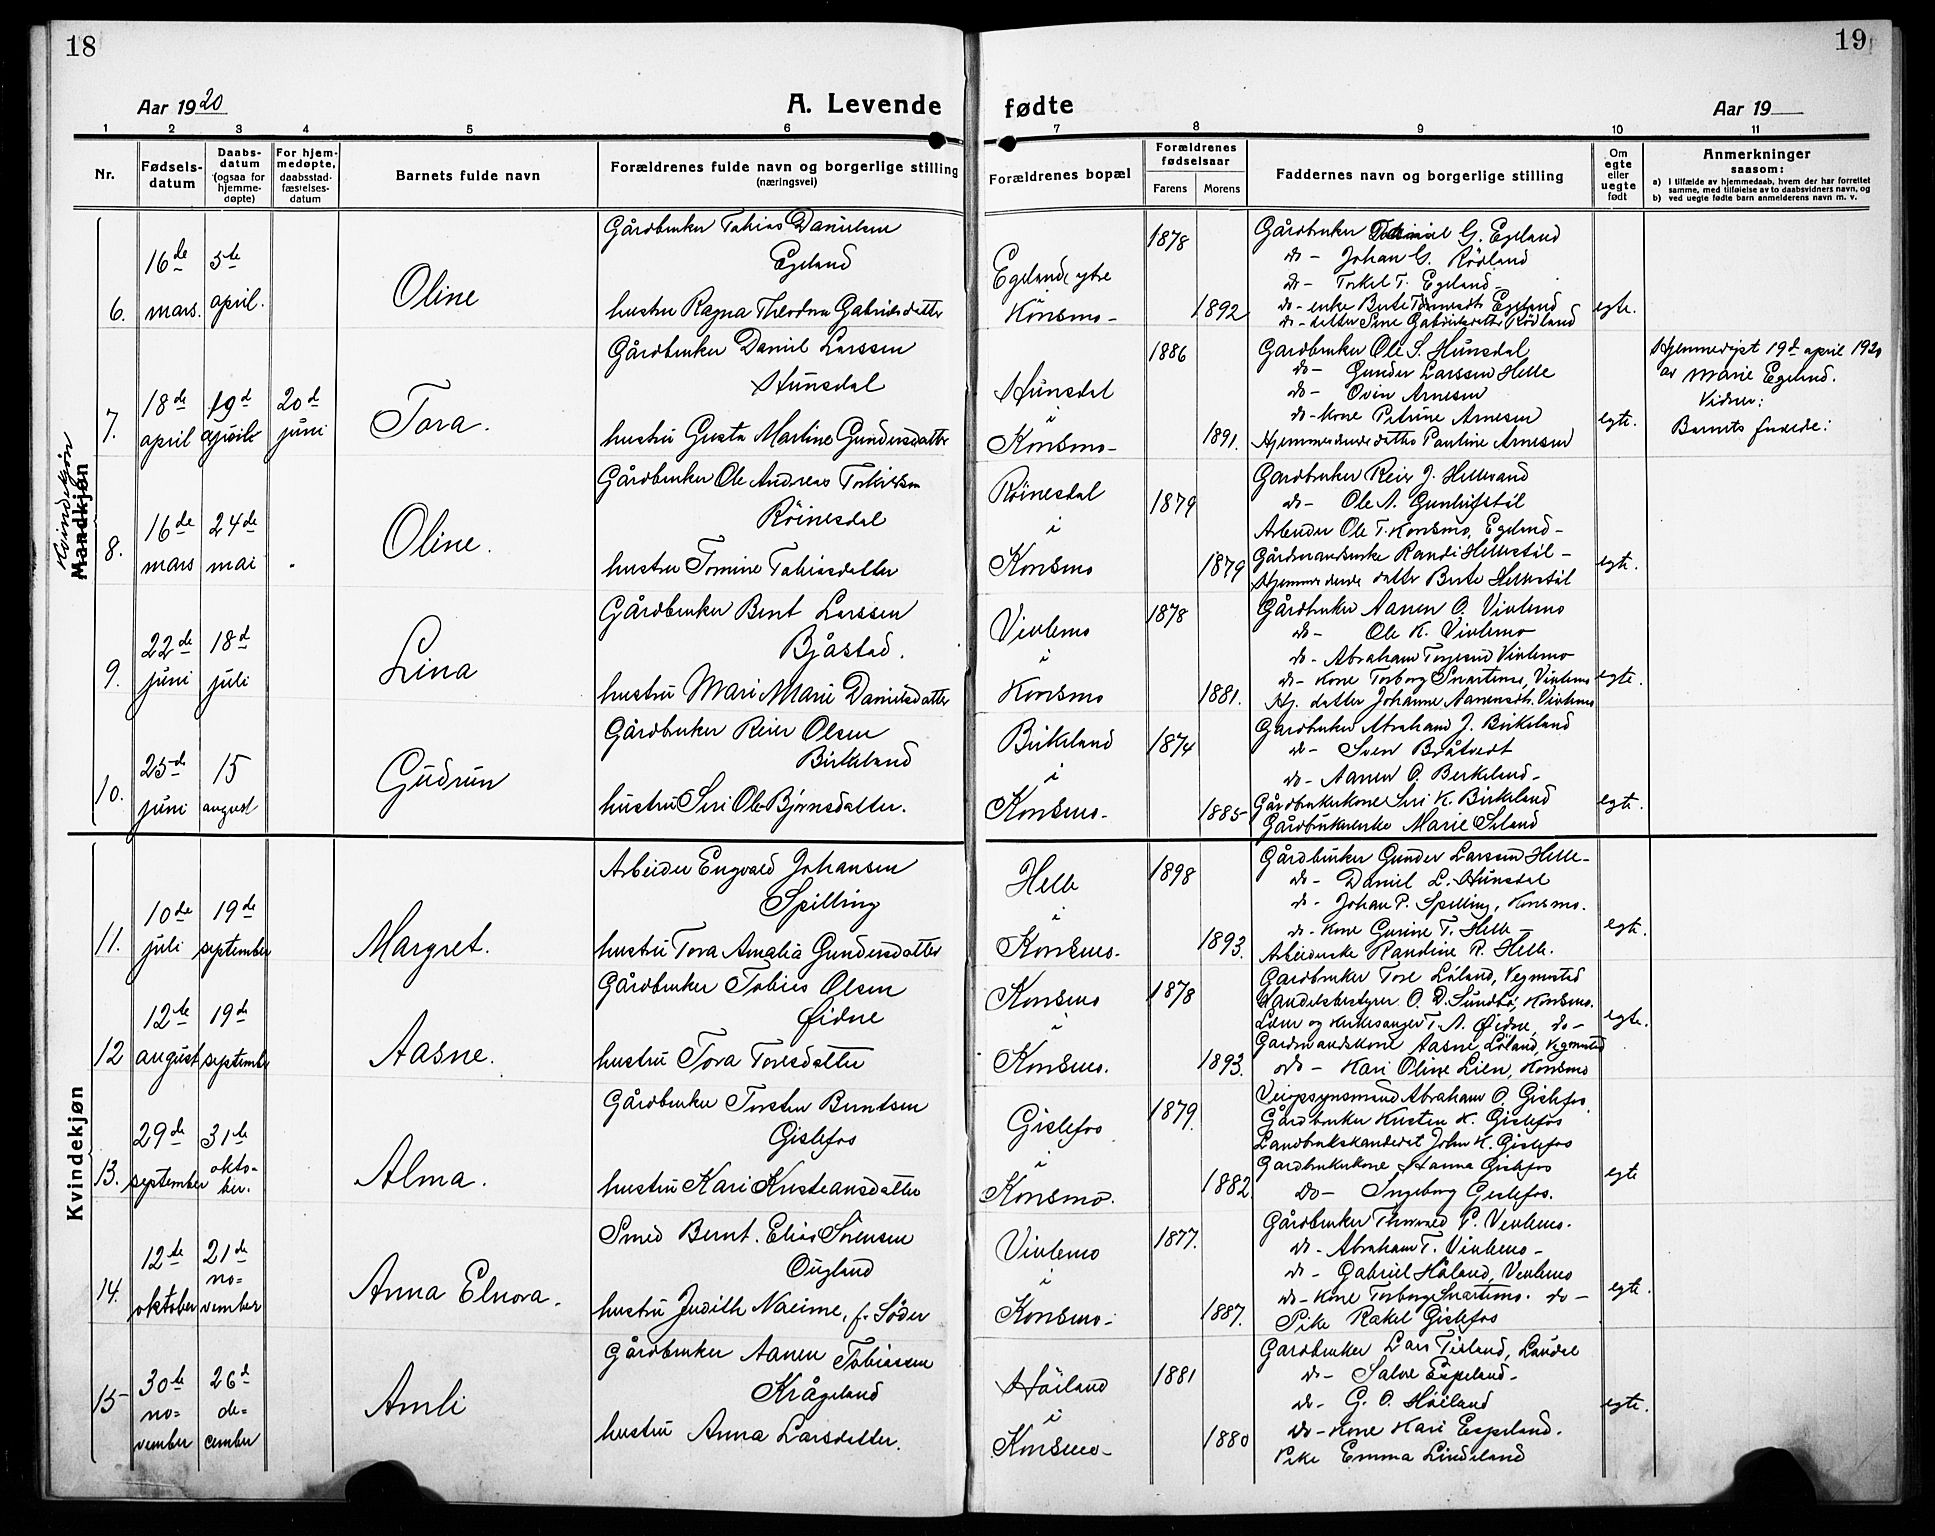 18
19
Aar 1920
A. Levende fødte
Aar 19
1 2 3 4 5 6 7 8 9 10 11
Nr.
Fødsels-
datum
Daabs-
datum
(ogsaa for
hjemme-
døpte)
For hjem-
medøpte,
daabsstad-
fæstelses-
datum
Barnets fulde navn
Forældrenes fulde navn og borgerlige stilling
(næringsvei)
Forældrenes bopæl
Forældrenes
fødselsaar
Farens
Morens
Faddernes navn og borgerlige stilling
Om
egte
eller
uegte
født
Anmerkninger
saasom:
a) I tilfælde av hjemmedaab, hvem der har forrettet
samme, med tilføielse av to daabsvidners navn, og
b) ved uegte fødte barn anmelderens navn m. v.
Kvindekjøn
Mandkjøn
6.
16de
mars.
5te
april.
Oline
Gårdbruker Tobias Danielsen
Egeland
hustru Ragna Theodora Gabrielsdatter
Egeland ytre
Konsmo -
1878
1892
Gårdbruker G. Egeland
do - Johan G. Rödland
do - Torkel T. Egeland -
do - enke Berte Egeland
do - datter Sine Gabrielsdatter Rödland
egte.
7.
18de
april
19d
april
20d
juni
Tora.
Gårdbruker Daniel Larssen
Hunsdal
hustru Gusta Martine Gundersdatter
Hunsdal
i
Konsmo -
1886
1891.
Gardbruker Ole S. Hunsdal
do - Gunder Larssen Helle
do - Oven Arnesen
do - kone Petrine Arnesen
Hjemmev. datter Pauline Arnesen
egte.
Hjemmedøpt 19d april 1920
av Marie Egeland.
Vidner:
Barnets forældre:
8.
16de
mars
24de
mai
Oline.
Gårdbruker Ole Andreas Torkildsen
Röinesdal
hustru Tomine Tobiasdatter
Röinesdal
i
Konsmo
1879
1879
Gardbruker Reier J. Hellevand
do - Ole A. Gunleifstöl
Arbeider Ole T. Konsmo, Egeland -
Gårdmandsenke Randi Hellestöl -
Hjemmeværende datter Berte Hellestöl
egte.
9.
22de
juni
18d
juli
Lina
Gårdbruker Bent Larssen
Bjåstad.
hustru Mari Marie Danielsdatter
Vivlemo
i
Konsmo
1878
1881.
Gårdbruker Aanen O. Vivlemo
do - Ole K. Vivlemo
do - Abraham Torjesen Vivlemo
do - kone Torborg Svartemo, Vivlemo
Hj. datter Johanne Aanensdtr. Vivlemo
egte.
10.
25de
juni
15
august
Gudrun
Gårdbruker Reier Olsen
Birkeland
hustru Siri Ole-Bjørnsdatter.
Birkeland
i
Konsmo -
1874
1885
Gardbruker Abraham J. Birkeland
do - Sven Bråtvedt
do - Aanen O. Berkeland -
Gårdbrukerkone Siri K. Birkeland
Gårdbrukerenke Marie Seland
egte.
Kvindekjøn
11.
10de
juli
19de
september
Margret.
Arbeider Engvald Johansen
Spilling
hustru Tora Amalia Gundersdatter
Helle
i
Konsmo.
1898
1893.
Gårdbruker Gunder Larssen Helle -
do - Daniel L. Hunsdal
do - Johan P. Spilling, Konsmo.
do - kone Gurine T. Helle -
Arbeiderske Randine R. Helle.
egte.
12
12te
august
19de
september
Aasne.
Gårdbruker Tobias Olsen
Øidne
hustru Tora Toresdatter
Konsmo
i
Konsmo.
1878
1893.
Gardbruker Tore Löland, Vegmostad
Handelsbestyrer O. D. Sundbö, Konsmo.
Lærer og kirkesanger T. A. Øidne, do -
Gardmandskone Aasne Löland, Vegmostad
do - Kari Oline Lien, Konsmo
egte.
13.
29de
september
31te
okto-
ber.
Alma.
Gårdbruker Torsten Berntsen
Gislefos
hustru Kari Kristiansdatter
Gislefos
i
Konsmo.
1879.
1882.
Veiopsynsmand Abraham O. Gislefos.
Gårdbruker Kristen K. Gislefos
Landbrukskandidat John K. Gislefos
Gardbrukerkone Hanna Gislefos
do - Ingeborg Gislefos.
egte
14.
12te
oktober
21de
no-
vember
Anna Elnora.
Smed Bernt Elias Sörensen
Ougland
hustru Judith Naeime, f. Söder
Vivlemo
i
Konsmo -
1877.
1887.
Gårdbruker Thorvald P. Vivlemo.
do - Abraham T. Vivlemo -
do - Gabriel Håland, Vivlemo
do - kone Torborg Svartemo. do -
Pike Rakel Gislefos
egte.
15
30te
no-
vember
26d
de-
cember
Amli
Gårdbruker Aanen Tobiassen
Krågeland
hustru Anna Larsdatter.
Höiland
i
Konsmo -
1881
1880
Gardbruker Lars Tisland, Laudal
do - Salve Espeland -
do - G. O. Höiland
do - kone Kari Espeland.
Pike Emma Lindeland
egte.